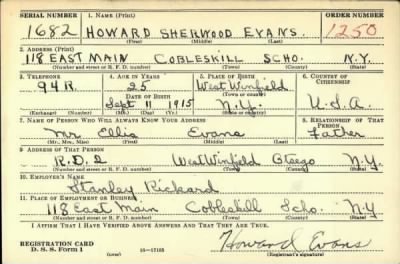 SERIAL NUMBER 1. NAME (Print) ORDER NUMBER
1682 HOWARD SHERWOOD EVANS 1250
(First) (Middle) (Last)
2. ADDRESS (Print)
118 EAST MAIN COBLESKILL SCHO. N.Y.
(Number and street or R. F. D. number) (Town) (County) (State)
3. TELEPHONE 4. AGE IN YEARS 5. PLACE OF BIRTH 6. COUNTRY OF CITIZENSHIP
94R 25 West Winfield
DATE OF BIRTH (Town or county)
Sept 11 1915 N.Y. U.S.A.
(Mo.) (Day) (Yr.) (State or country)
7. NAME OF PERSON WHO WILL ALWAYS KNOW YOUR ADDRESS 8. RELATIONSHIP OF THAT PERSON
Mr Ellis Evans Father
(Mr., Mrs., Miss) (First) (Middle) (Last)
9. ADDRESS OF THAT PERSON
R.D. 2 West Winfield Otsego N.Y.
(Number and street or R. F. D. number) (Town) (County) (State)
10. EMPLOYER'S NAME
Stanley Rickard
11. PLACE OF EMPLOYMENT OR BUSINESS
118 East Main Cobleskill Scho. N.Y
(Number and street or R. F. D. number) (Town) (County) (State)
I AFFIRM THAT I HAVE VERIFIED ABOVE ANSWERS AND THAT THEY ARE TRUE.
REGISTRATION CARD
D. S. S. Form 1 16—17105 Howard Evans
(Registrant's signature)